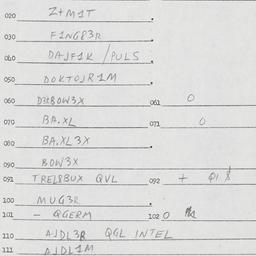 020 Z+M1T
030 F1NG83R
060 DAJF1K / PULS
050 DOKTOJR1M
060 BOW3X 061 0
070 BA.XL 071 0
080 BA.XL3X
090 BOW3X
091 TREL8BUX QVL 092 +
100 MUG3R
101 - QGERM 102 0
110 AJDL3R QGL INTEL
111 AJDL1M